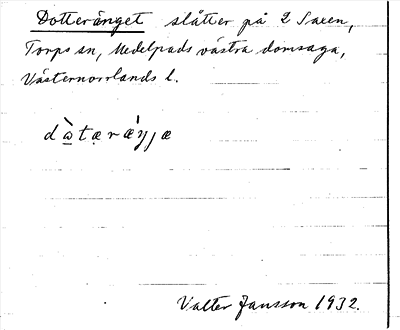 Dotteränget slåtter på 2 Saxen,
Torps sn, Medelpads västra domsaga,
Västernorrlands l.
Valter Jansson 1932.